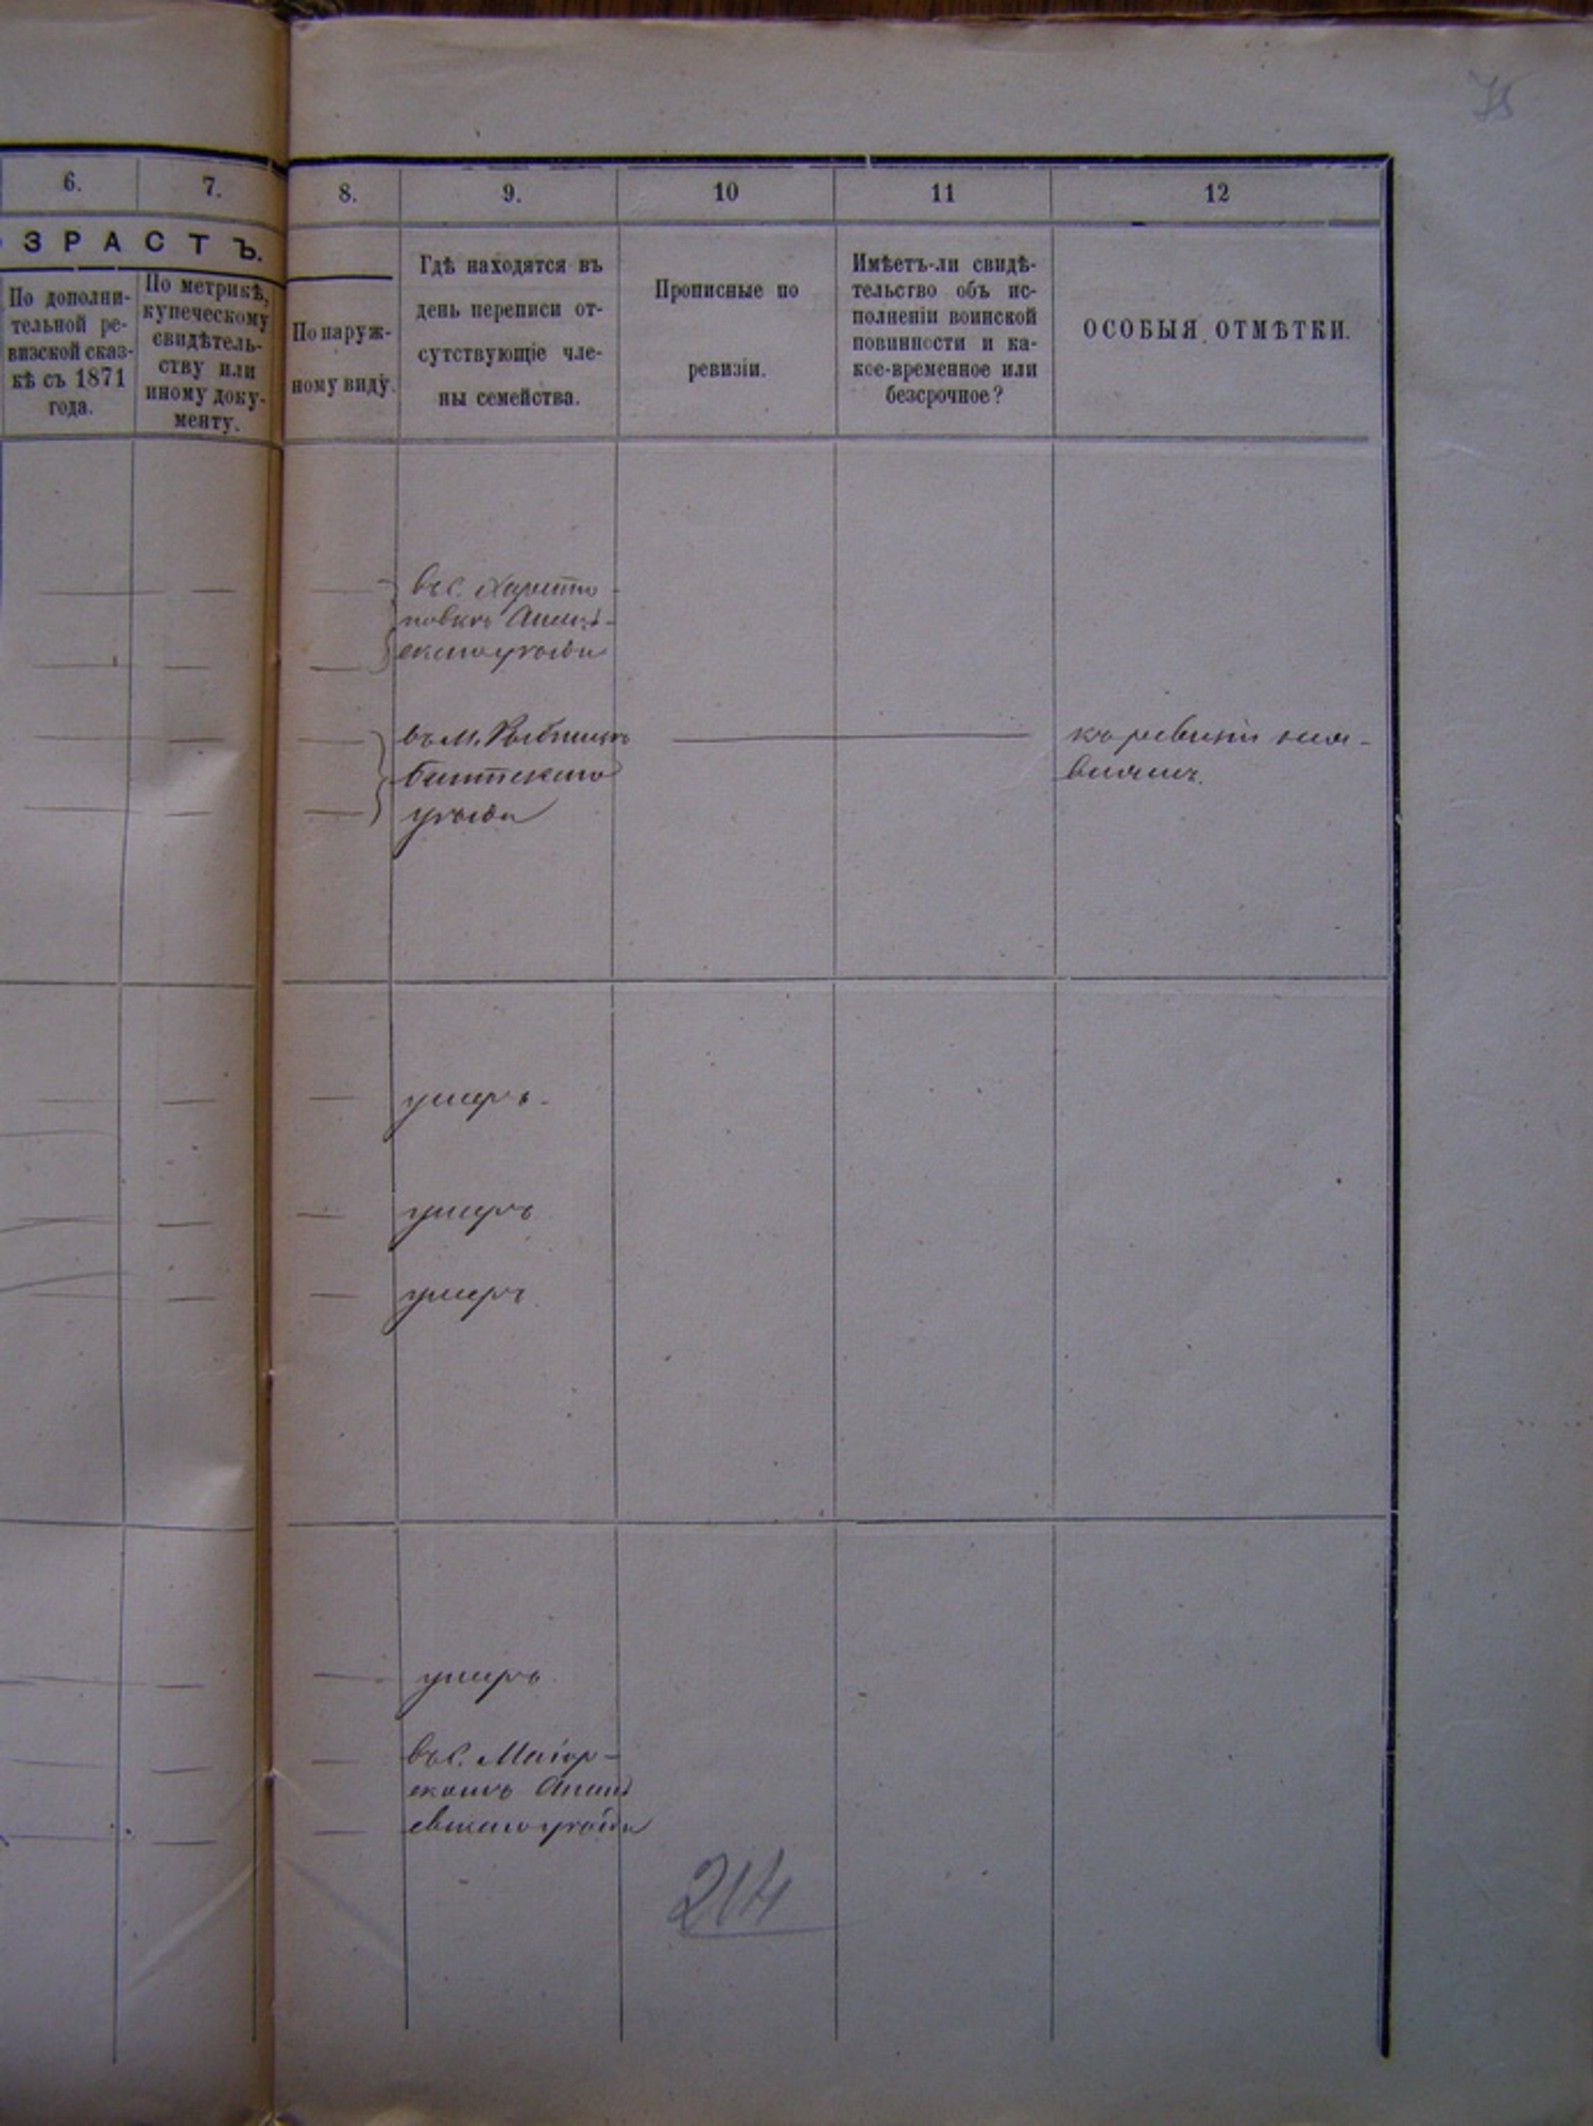 75
6.
7.
8.
9.
10
11
12
ЗРАСТЪ.
По дополни-
тельной ре-
визской сказ-
кѣ съ 1871
года.
По метрикѣ,
купеческому
свидѣтель-
ству или
иному доку-
менту.
По наруж-
ному виду.
Гдѣ находятся въ
день переписи от-
сутствующіе чле-
ны семейства.
Прописные по
ревизіи.
Имѣетъ-ли свидѣ-
тельство объ ис-
полненіи воинской
повинности и ка-
кое-временное или
безсрочное?
ОСОБЫЯ ОТМѢТКИ.
въ с. Харито
новкѣ
уѣзда
въ м. Рыбницѣ
Балтскаго
уѣзда
къ ревизіи неяв-
вились.
умеръ.
умеръ
умеръ
умеръ.
въ с. Маіор-
скомъ Анань
евскаго уѣзда
214